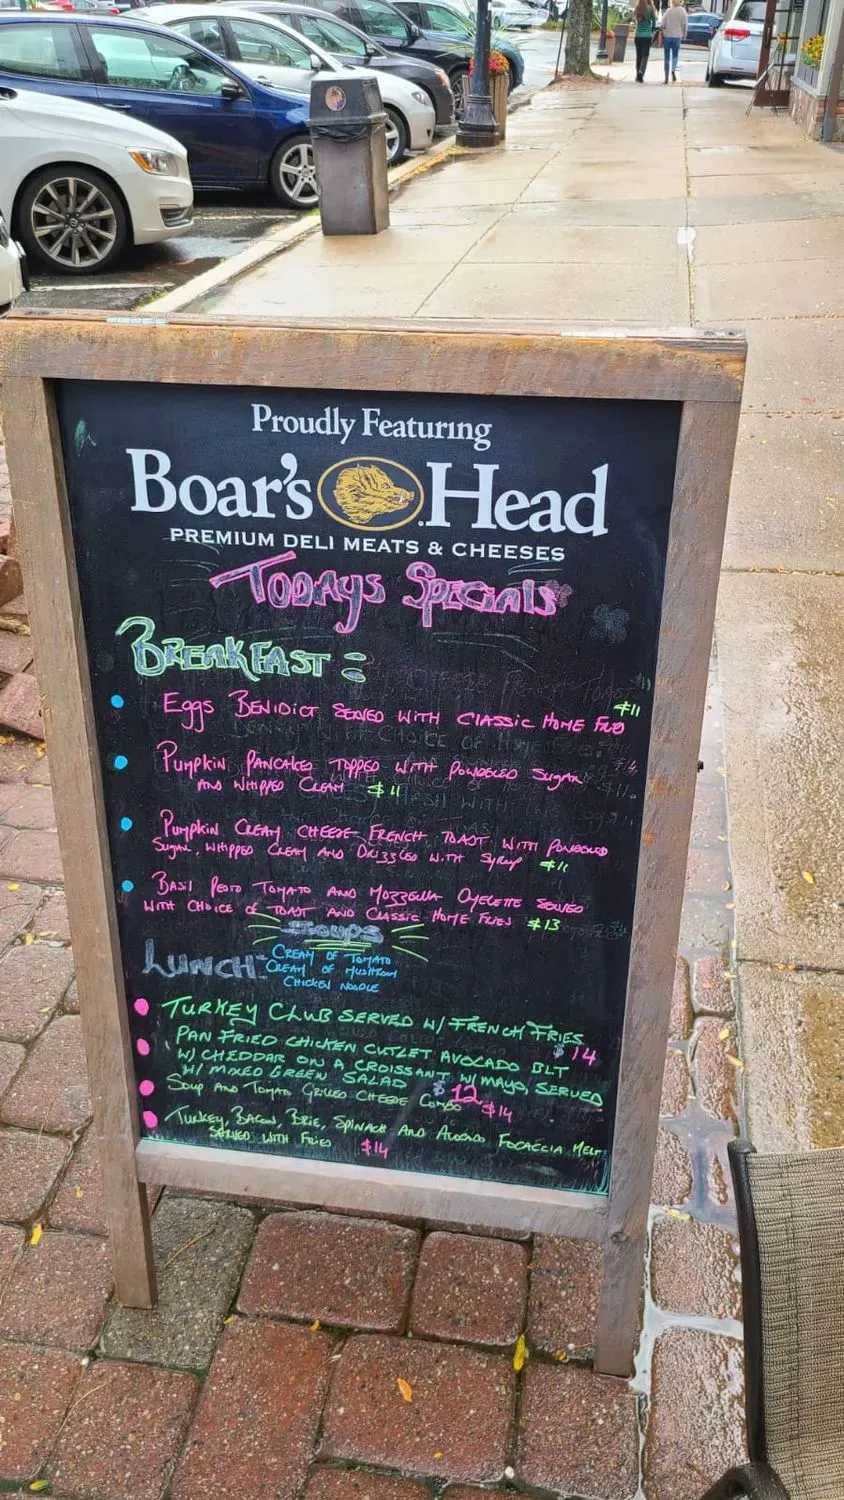 Proudly Featuring
Boar's Head
PREMIUM DELI MEATS & CHEESES
TODAYS SPECIALS
BREAKFAST:
EGGS BENIDICT SERVED WITH CLASSIC HOME FRIED $11
PUMPKIN PANCAKES TOPPED WITH POWDERED SUGAR
AND WHIPPED CREAM $11
PUMPKIN CREAM CHEESE FRENCH TOAST WITH POWDERED
SUGAR, WHIPPED CREAM AND DRIZZLED WITH SYRUP $11
BASIL PESTO TOMATO AND MOZZERELLA OMELETTE SERVED
WITH CHOICE OF TOAST AND CLASSIC HOME FRIES $13
SOUPS
LUNCH:
CREAM OF TOMATO
CREAM OF MUSHROOM
CHICKEN NOODLE
TURKEY CLUB SERVED W/ FRENCH FRIES
$14
PAN FRIED CHICKEN CUTLET AVOCADO BLT
W/ CHEDDAR ON A CROISSANT W/ MAYO, SERVED
W/ MIXED GREEN SALAD $12
SOUP AND TOMATO GRILLED CHEESE COMBO $14
TURKEY, BACON, BRIE, SPINACH AND AVOCADO FOCACCIA MELT
SERVED WITH FRIES $14